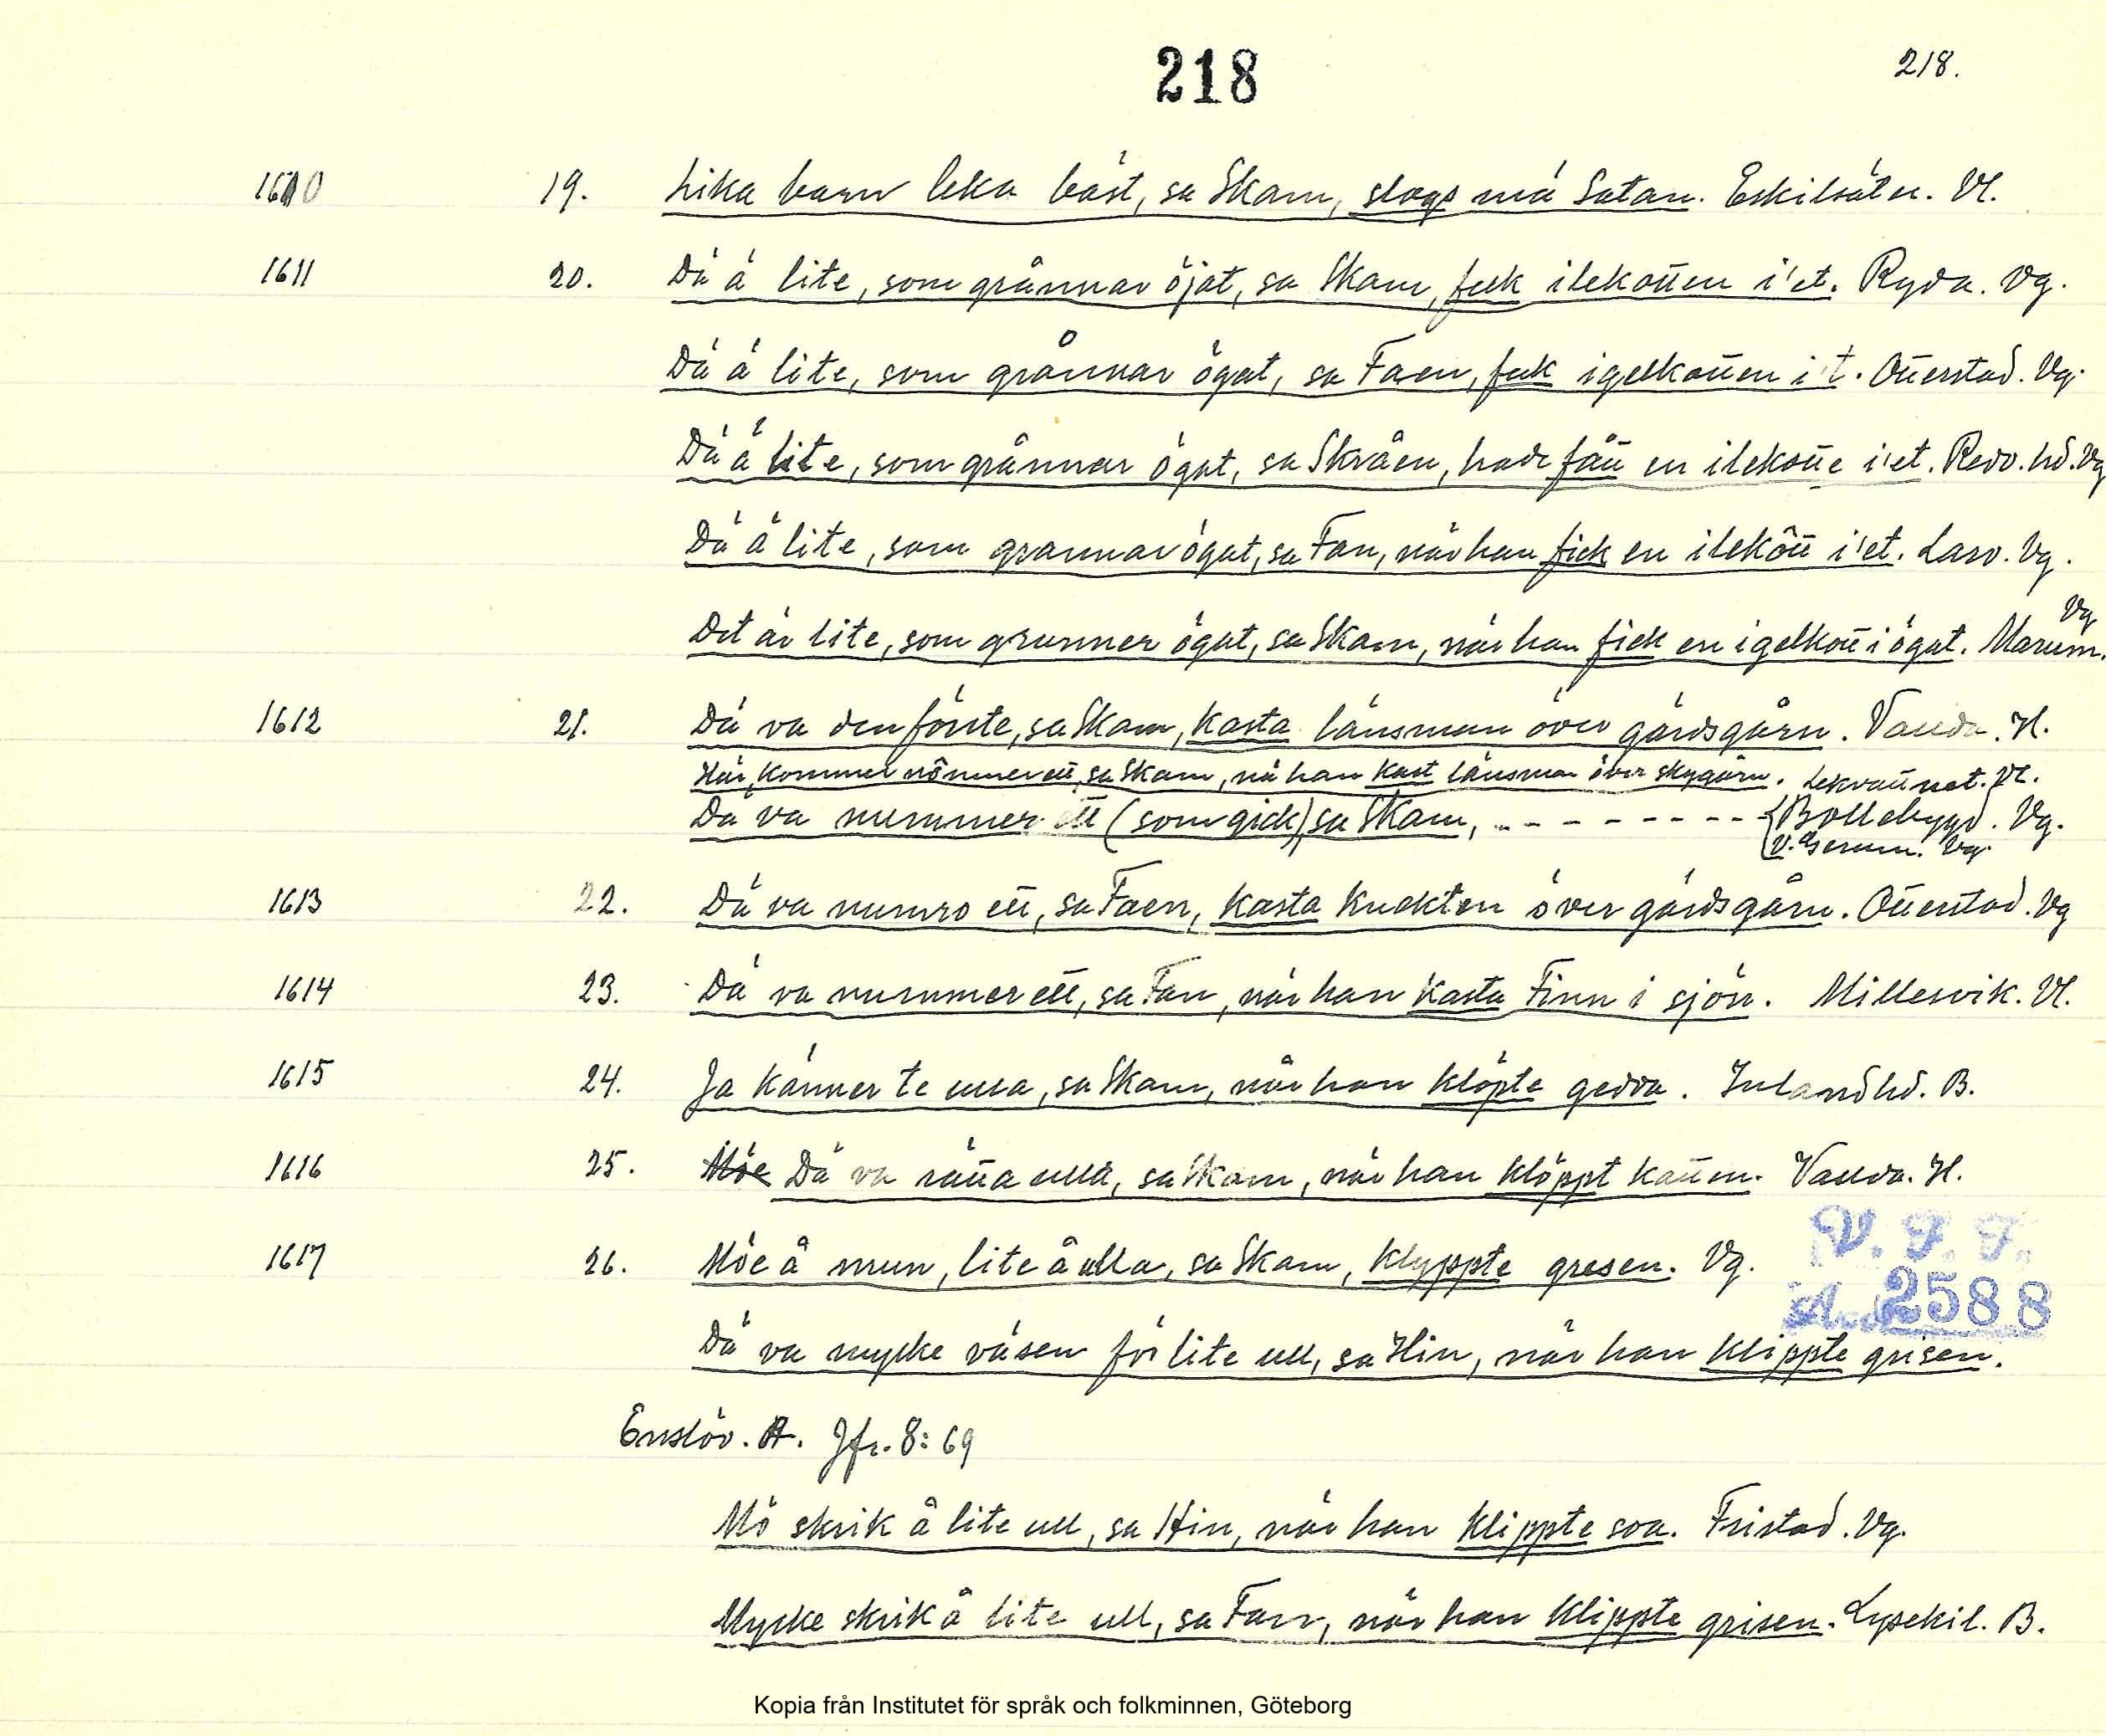 218
218.
1610 19. Lika barn leka bäst, sa Skam, slogs mä Satan. Eskilsäter. Vl.
1611 20. Dä ä lite, som grånnar öjat, sa Skam, fekk ilekotten i'et. Ryda. Vg.
Dä ä lite, som grånnar ögat, sa Faen, fekk igelkotten i't. Otterstad. Vg.
Dä ä lite, som grånnar ögat, sa Skråen, hade fått en ilekotte i'et. Redv. hd. Vg
Dä ä lite, som grannar ögat, sa Fan, när han fick en ilekôtt i'et. Larv. Vg.
Det är lite, som grunner ögat, sa Skam, när han fick en igelkott i ögat. Marum. Vg
1612 21. Dä va den förste, sa Skam, kasta länsman över gärdsgårn. Valda. H.
Här kommer nômmer ett, sa Skam, nä han kast länsman över skygårn. Lekvattnet. Vl.
Dä va nummer ett (som gick), sa Skam, - - - - - - - - - { Bollebygd. Vg.
V. Gerum. Vg.
1613 22. Dä va numro ett, sa Faen, kasta knekten över gärdsgårn. Otterstad. Vg
1614 23. Dä va nummer ett, sa Fan, när han kasta Finn i sjön. Millesvik. Vl.
1615 24. Ja känner te ulla, sa Skam, når han klöpte gedda. Inlandhd. B.
1616 25. Möe Dä va räua ulla, sa Skam, när han klöppt katten. Valda. H.
1617 26. Möe å mun, lite å ulla, sa Skam, klyppte gresen. Vg.
V. F. F.
2588
Dä va mycke väsen för lite ull, sa Hin, när han klippte grisen.
Enslöv. H. Jfr. 8:69
Mö skrik å lite ull, sa Hin, när han klippte soa. Fristad. Vg.
Mycke skrik å lite ull, sa Fan, när han klippte grisen. Lysekil. B.
Kopia från Institutet för språk och folkminnen, Göteborg